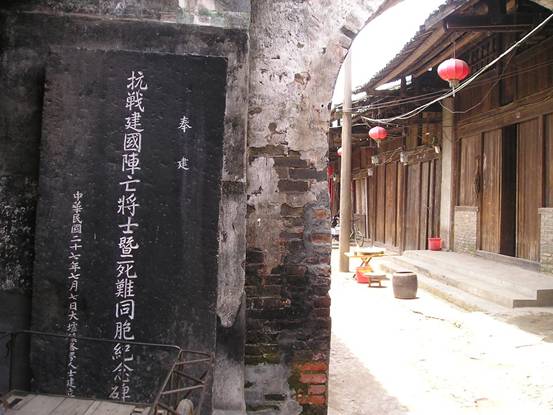 奉建
抗戰建國陣亡將士暨死難同胞紀念碑
中華民國二十七年七月七日大墟
人士建立